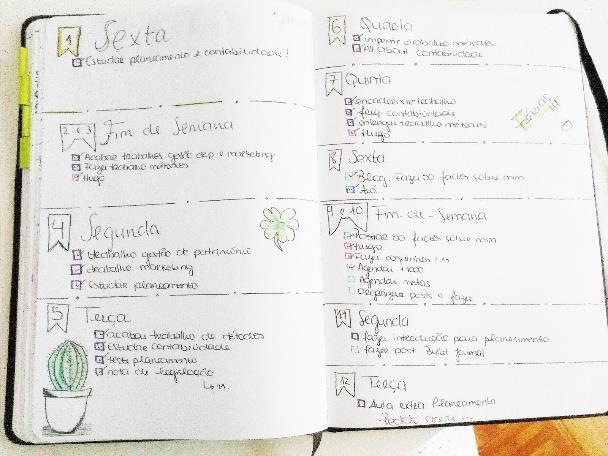 1 Sexta
Estudar planeamento e contabilidade!
2 e 3 Fim de Semana
Acabar trabalhos gestão dep e marketing
Fazer trabalho métodos
Hugo
4 Segunda
trabalho gestão do património
trabalho marketing
Estudar planeamento
5 Terça
acabar trabalho de métodos
Estudar contabilidade
teste planeamento
nota de legislação
6 Quarta
imprimir trabalho métodos
All About contabilidade
7 Quinta
encadernar trabalho
freq contabilidade
entregar trabalho métodos
Hugo
Férias!!!
8 Sexta
Blog. Fazer 50 factos sobre mim
Avó
9 e 10 Fim-de-Semana
Postar 50 factos sobre mim
Hugo
Fazer
Agendar
Agendar notas
Organizar posts a fazer
11 Segunda
fazer introdução para planeamento
fazer post Bullet Journal
12 Terça
Aula extra Planeamento